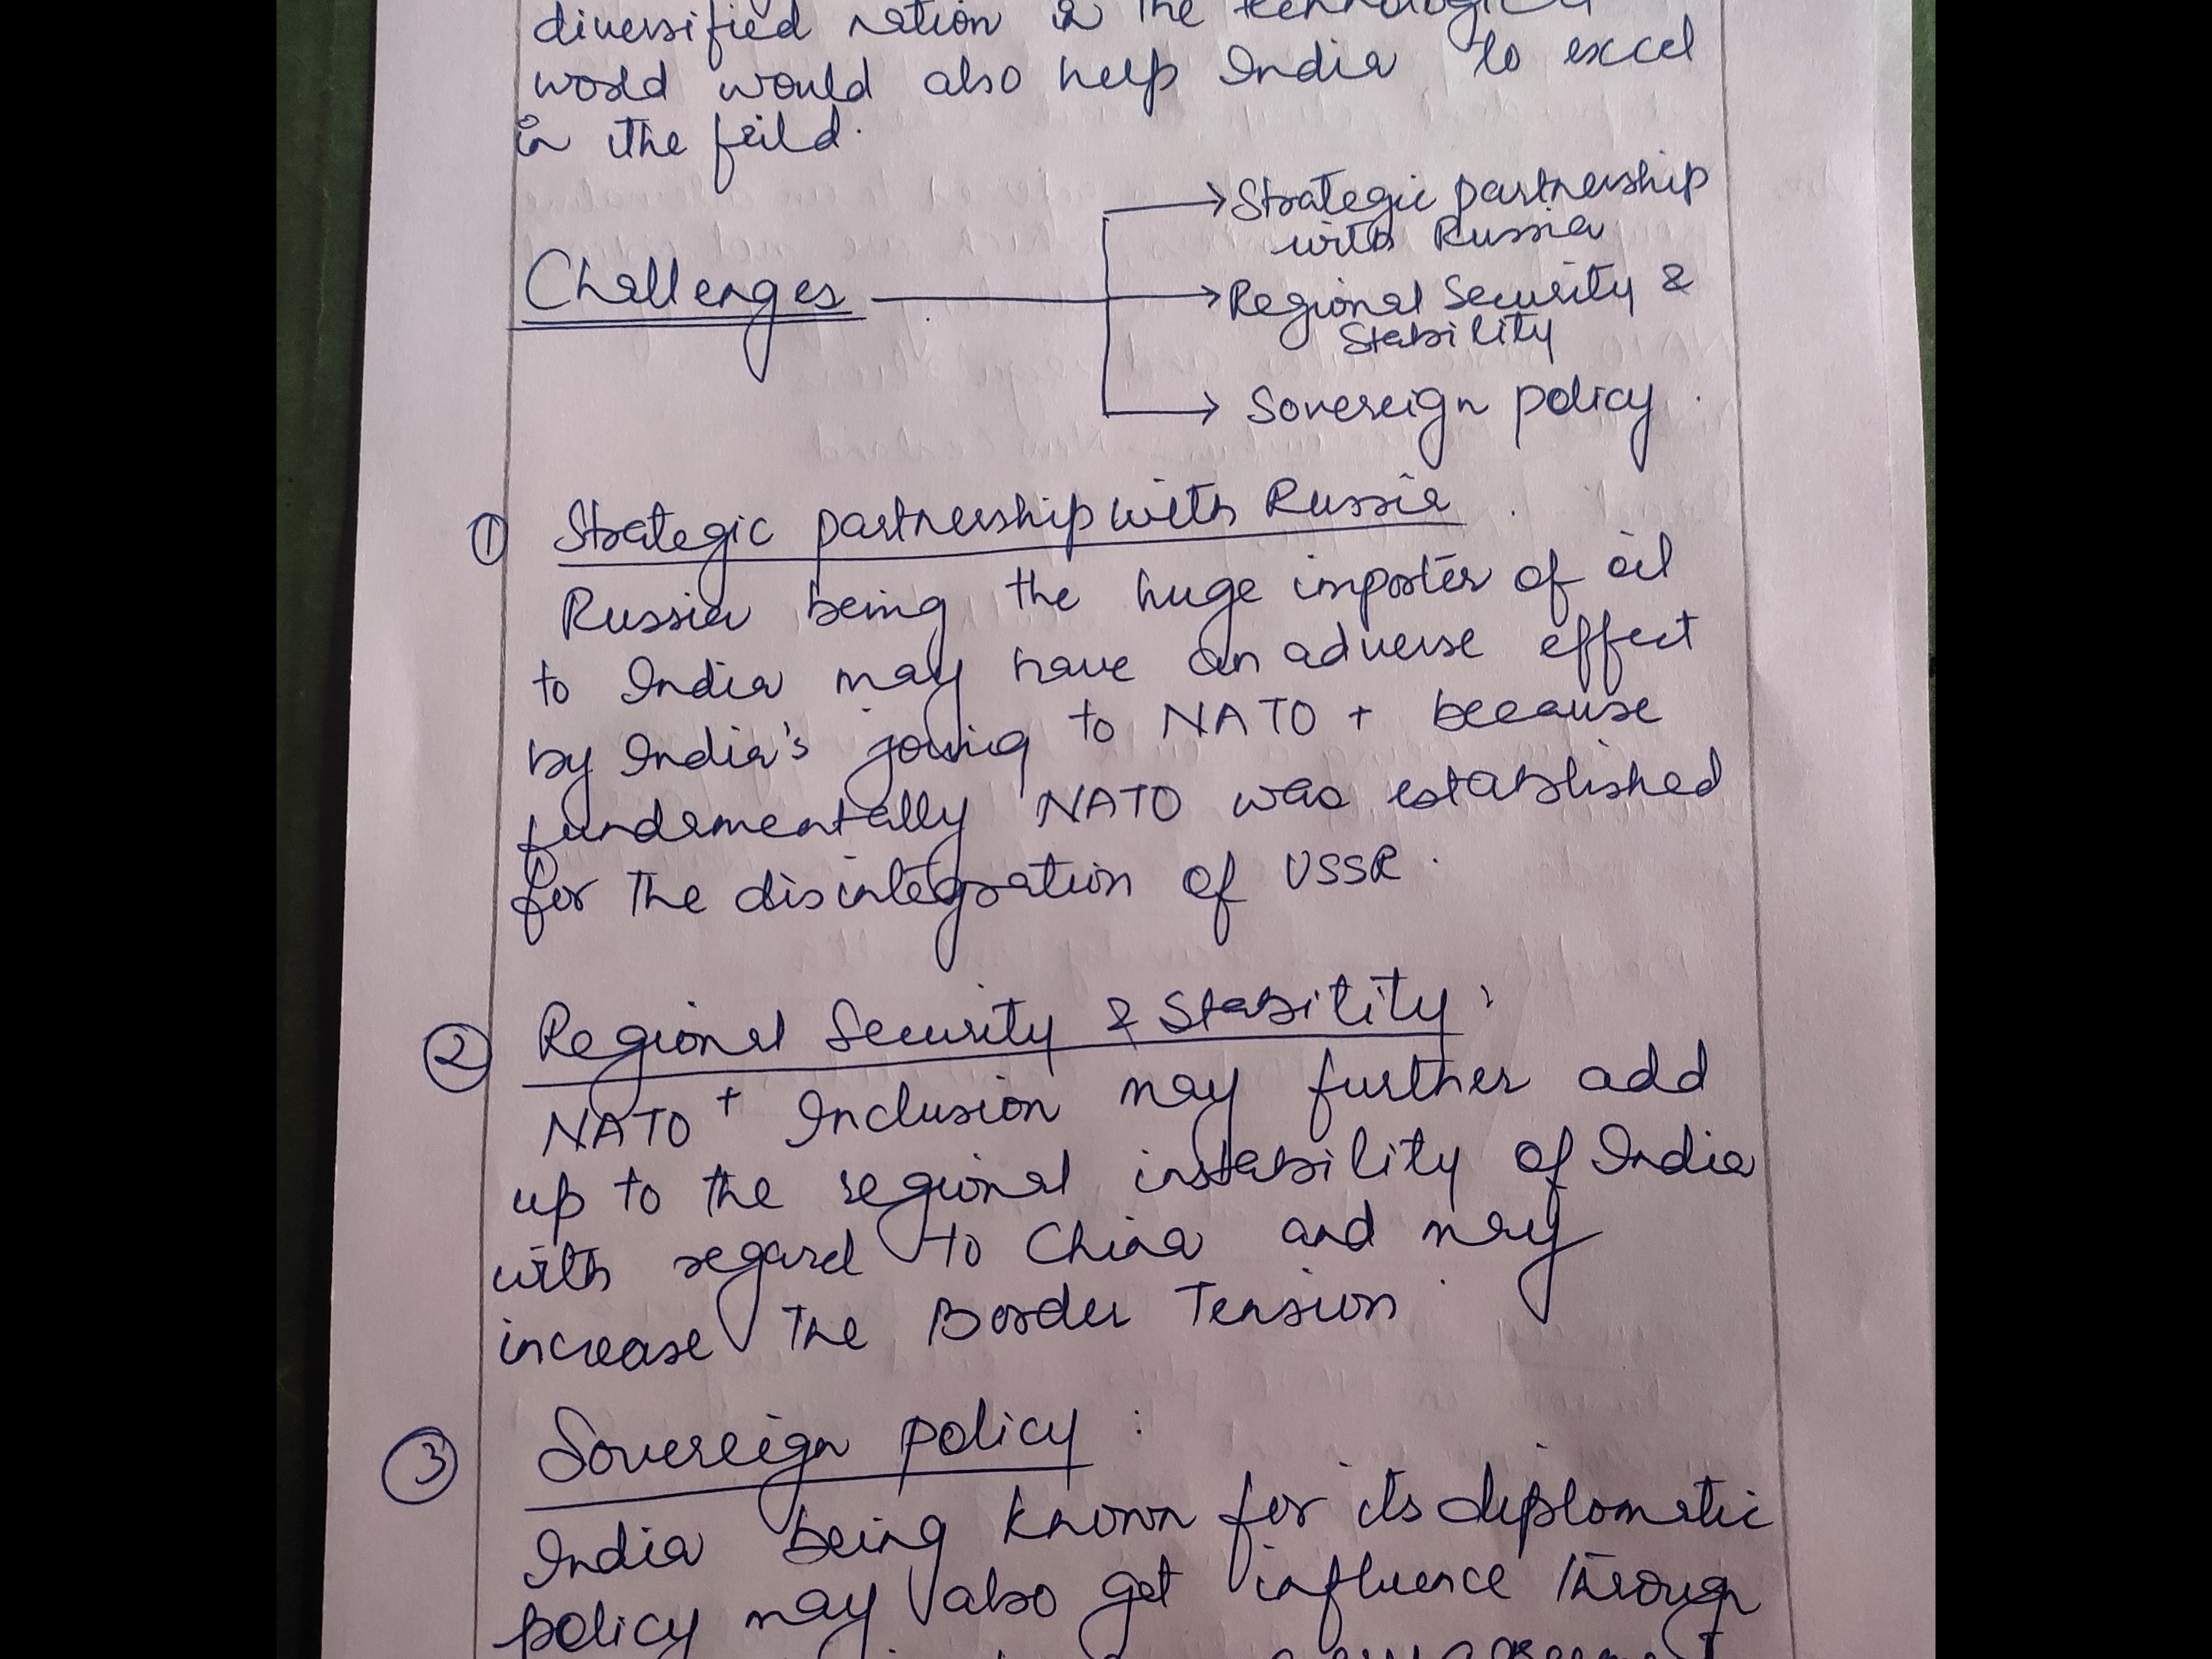 diversified nation in the technological
world would also help India to excel
in the feild.
Strategic partnership
with Russia
Challenges
Regional Security &
Stability
Sovereign policy
① Strategic partnership with Russia
Russia being the huge imposter of oil
to India may have an adverse effect
by India's joing to NATO + because
fundamentally NATO was established
for the disintegration of USSR.
② Regional Security & Stability:
NATO + Inclusion may further add
up to the regional instability of India
with regard to China and may
increase the Border Tension
③ Sovereign policy :
India being known for its diplomatic
policy may also get influence through